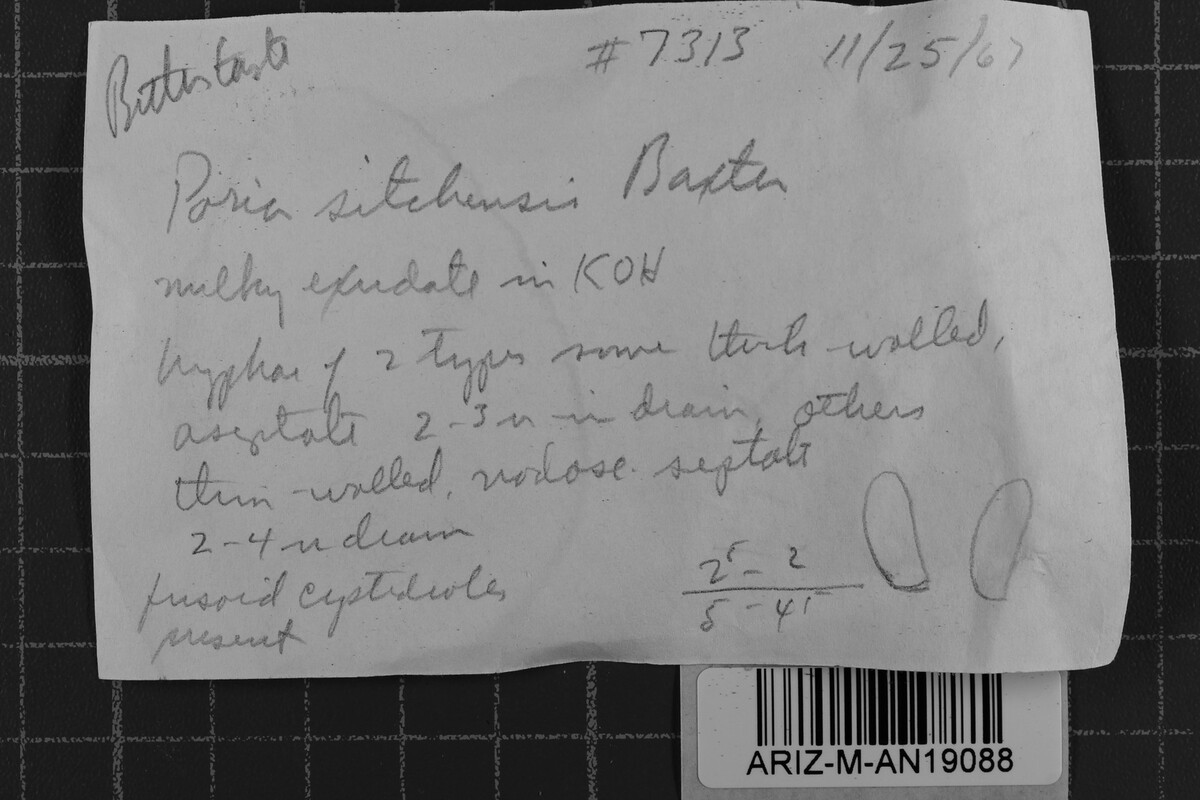 Bitter taste
#7313 11/25/67
Poria sitchensis Baxter
milky exudate in KOH
hyphae of 2 types some thick-walled,
aseptate 2-3 u in diam, others
thin-walled, nodose-septate
2-4 u diam
fusoid cystidioles
present
2⁵ - 2
5 - 4⁵
ARIZ-M-AN19088